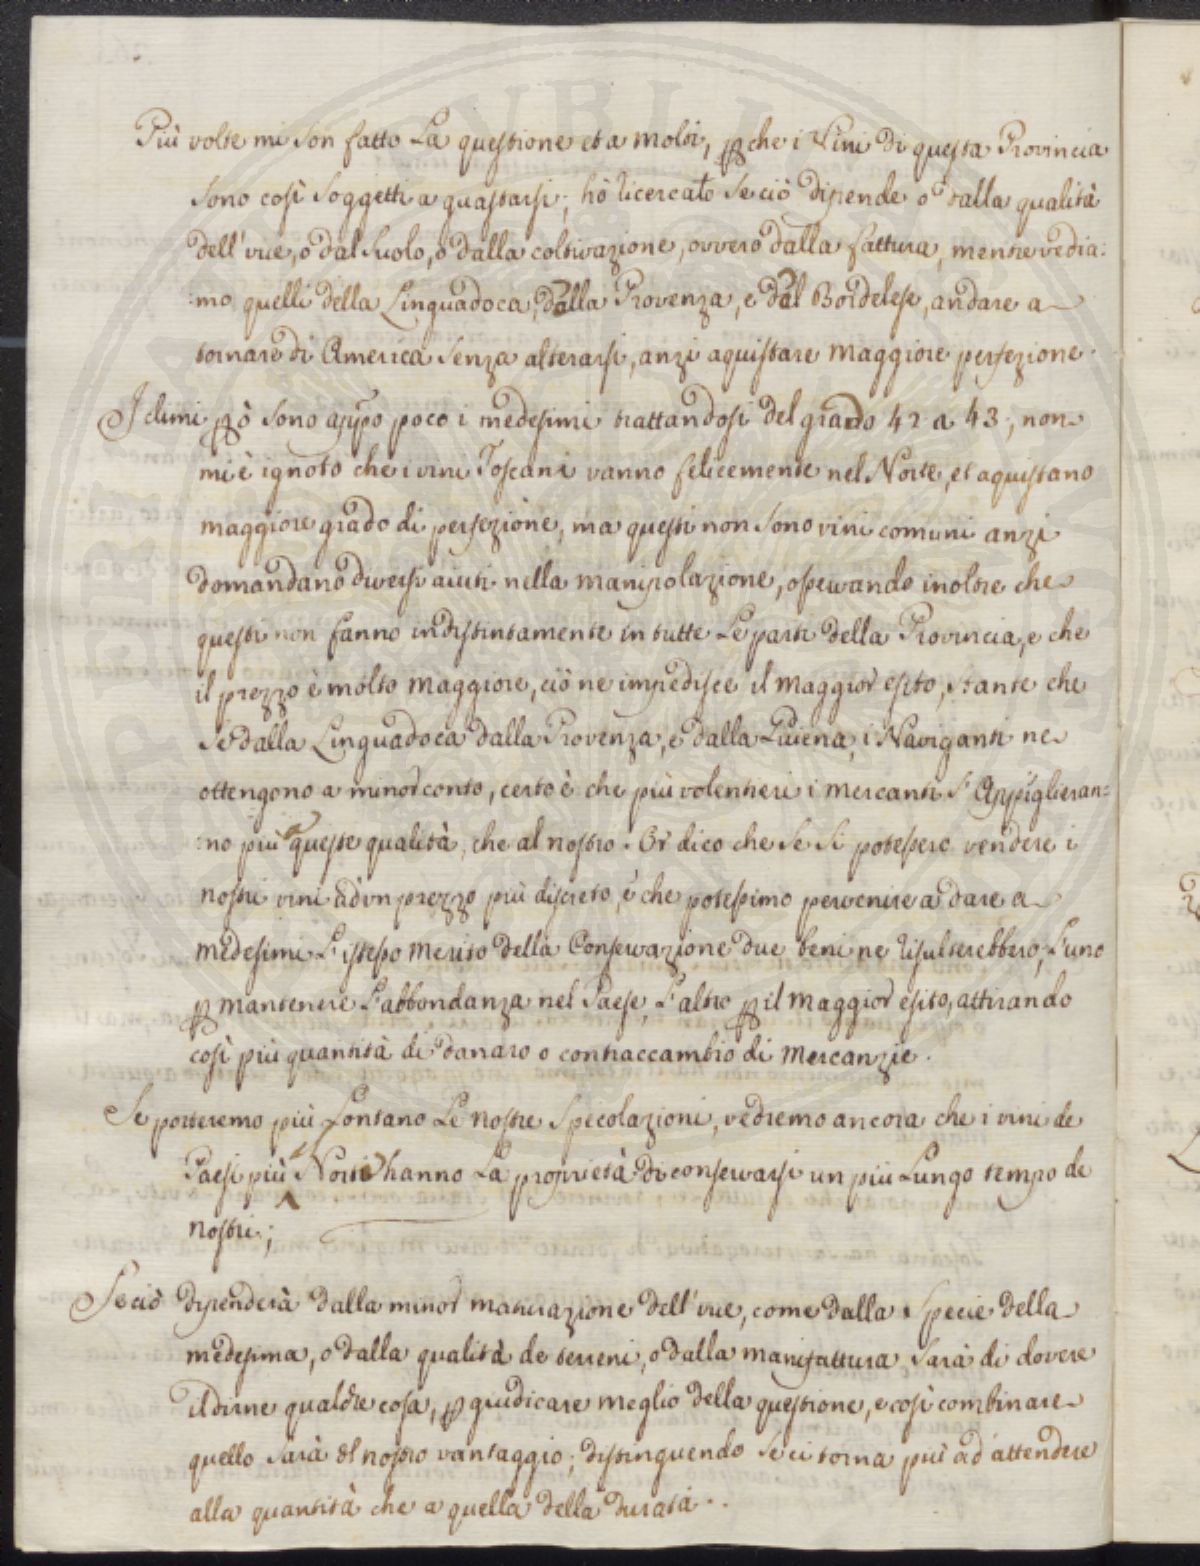 Più volte mi son fatto La questione et a molti, pche i Vini di questa Provincia
sono così soggetti a guastarsi; hò ricercato se ciò dipende o dalla qualità
dell'vue, o dal suolo, o dalla coltivazione, ovvero dalla fattura, mentre vedia:
:mo quelli della Linguadoca, dalla Provenza, e dal Bordelese, andare a
tornare di America senza alterarsi, anzi aquistare maggiore perfezione.
I climi pò sono appo poco i medesimi trattandosi del grado 42 a 43; non
mi è ignoto che i vini Toscani vanno felicemente nel Norte, et aquistano
maggiore grado di perfezione, ma questi non sono vini comuni anzi
domandano diversi aiuti nella manipolazione, osservando inoltre che
questi non fanno indistintamente in tutte Le parti della Provincia, e che
il prezzo è molto maggiore, ciò ne impedisce il maggior esito, stante che
se dalla Linguadoca dalla Provenza, e dalla Guiena, i Naviganti ne
ottengono a minor conto, certo è che più volentieri i mercanti s'Appiglieran=
:no più a queste qualità, che al nostro. Or dico che se si potessero vendere i
nostri vini ad vn prezzo più discreto, e che potessimo pervenire a dare a
medesimi L'istesso merito della Conservazione due beni ne risulterebbero; L'uno
p mantenere L'abbondanza nel Paese, L'altro p il maggior esito, attirando
così più quantità di danaro o contraccambio di Mercanzie.
Se porteremo più Lontano Le nostre specolazioni, vedremo ancora che i vini de
Paesi più a Norte hanno La proprietà di conservarsi un più Lungo tempo de
nostri;
Se ciò dipenderà dalla minor maturazione dell'vue, come dalla specie della
medesima, o dalla qualità de terreni, o dalla manifattura sarà di dovere
il dirne qualche cosa, p giudicare meglio della questione, e così combinare
quello sarà di nostro vantaggio; distinguendo se ci torna più ad attendere
alla quantità che a quella della durata..